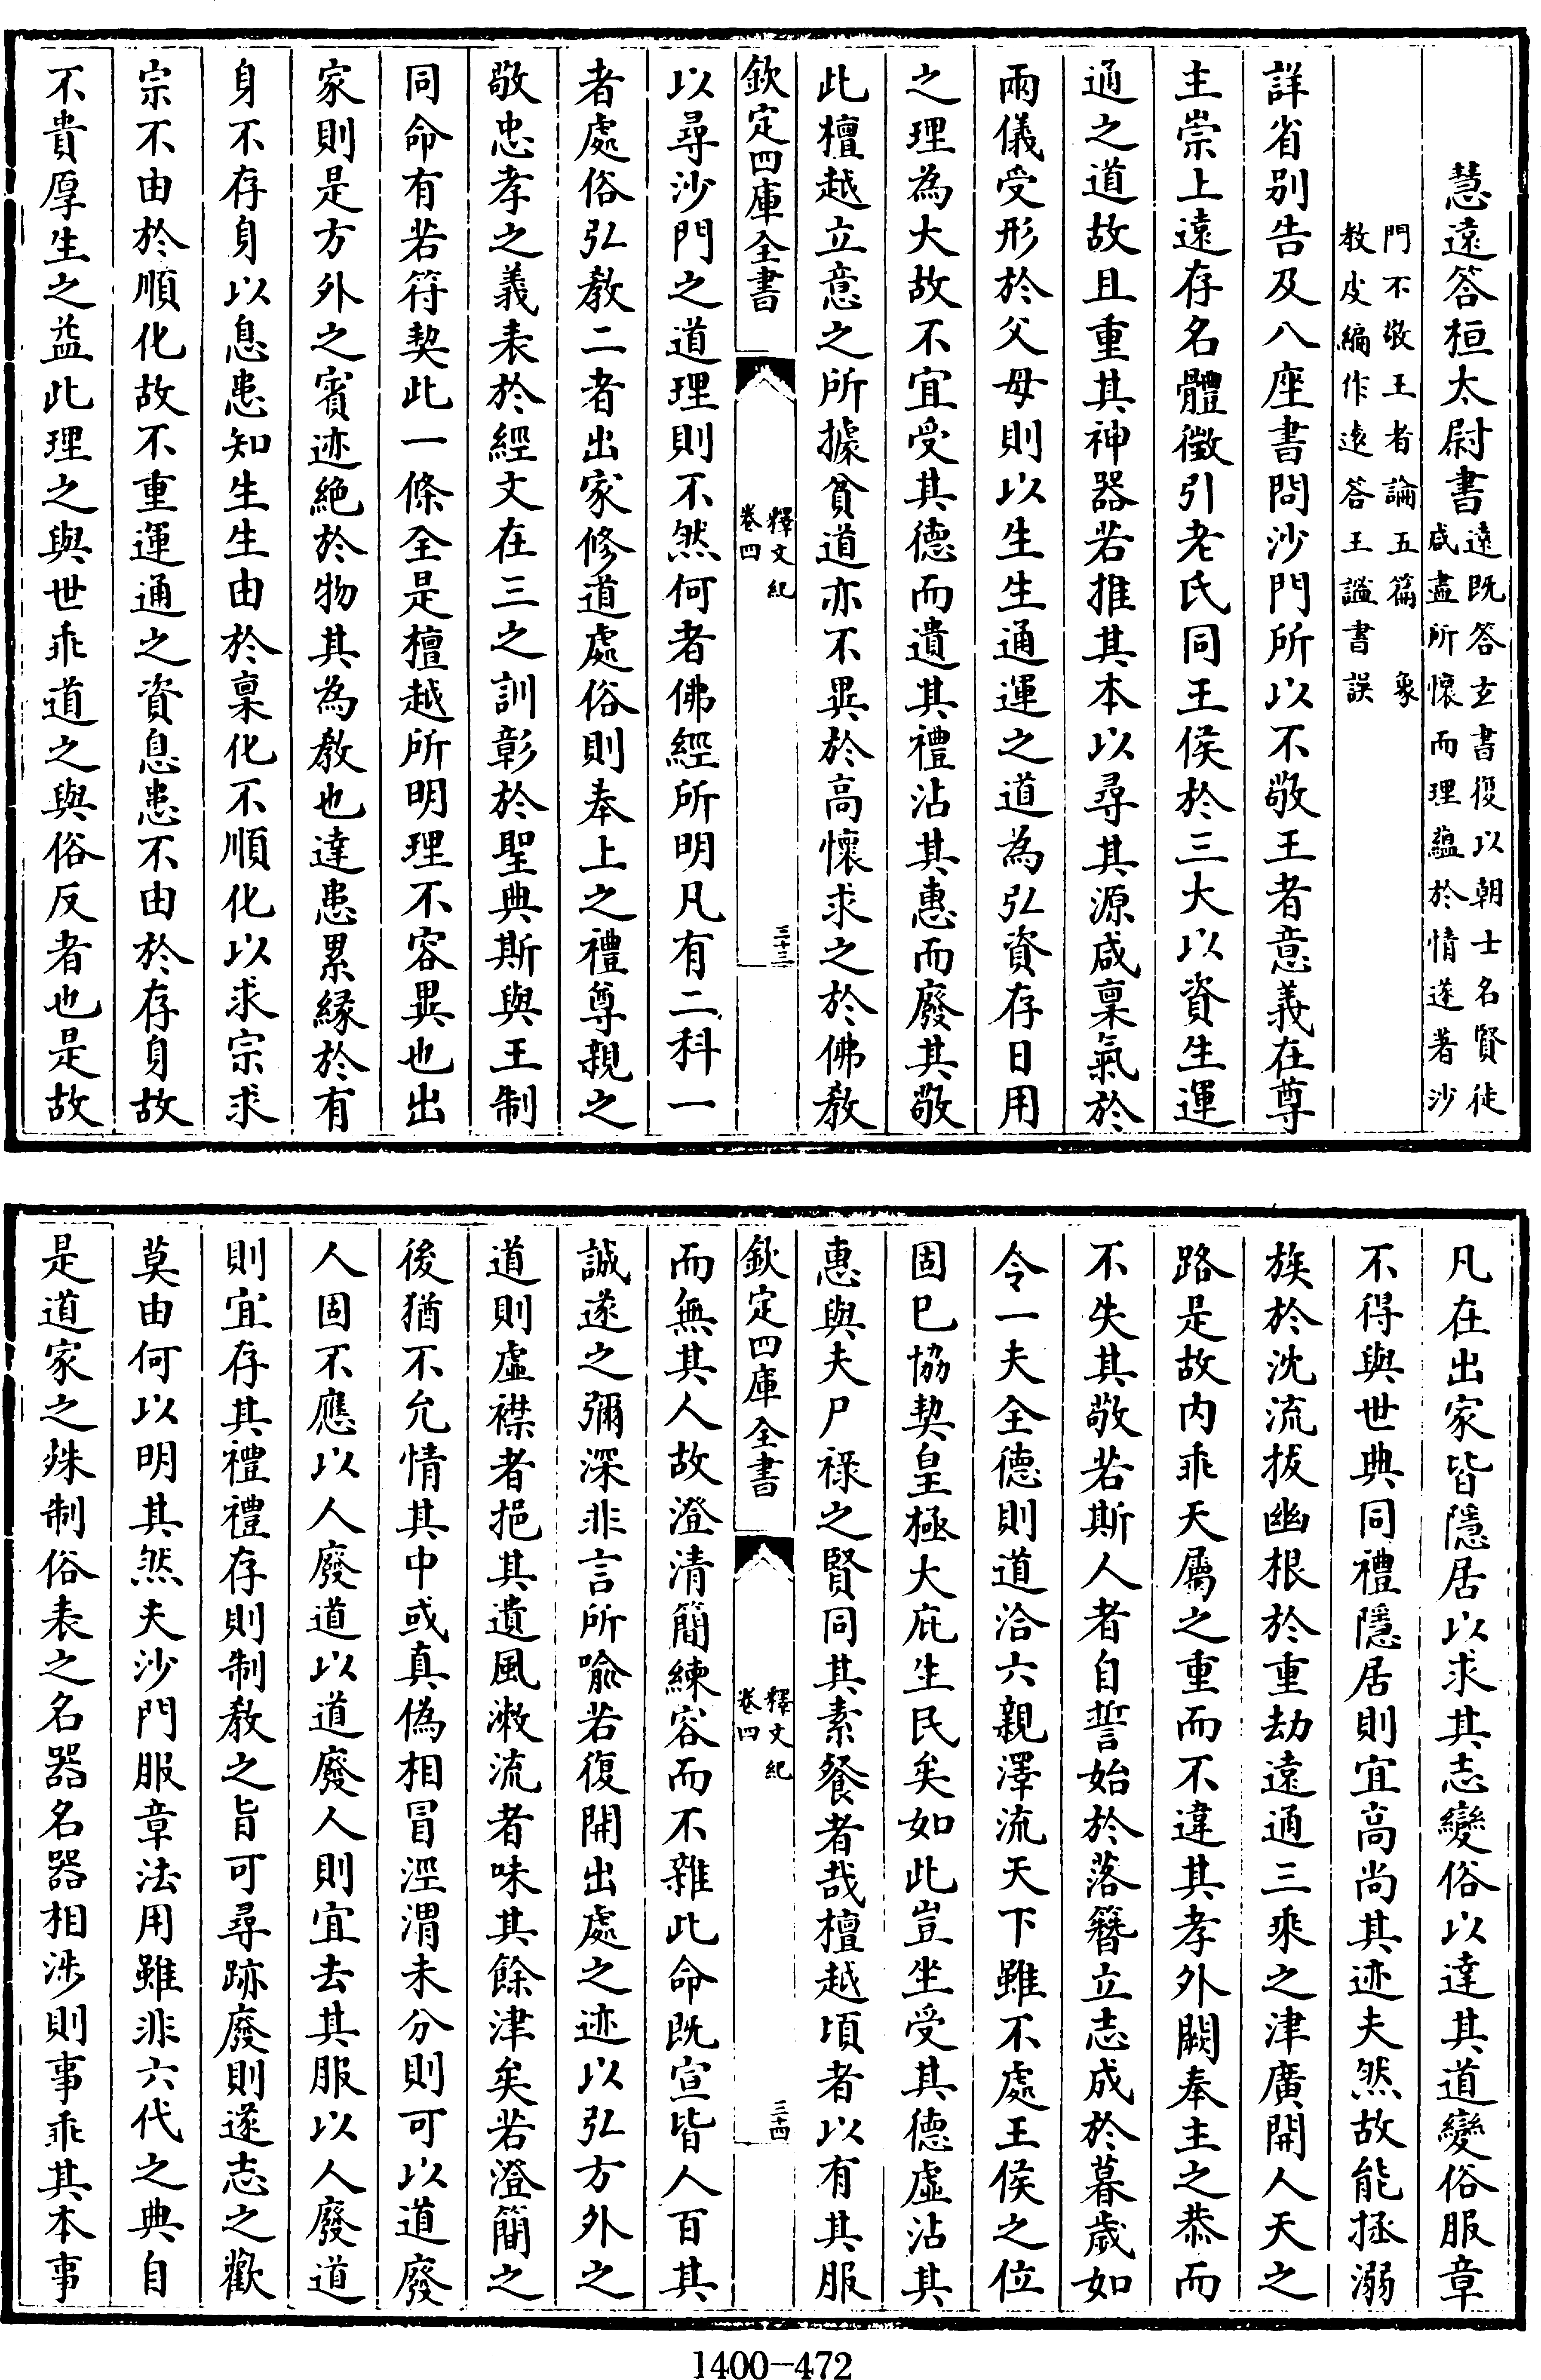 慧遠答桓太尉書遠既答玄書復以朝士名賢徒咸盡所懷而理蘊於情遂著沙
門不敬王者論五篇 象教皮編作遠答王謐書誤
詳省别告及八座書問沙門所以不敬王者意義在尊
主崇上遠存名體徵引老氏同王侯於三大以資生運
通之道故且重其神器若推其本以尋其源咸稟氣於
兩儀受形於父母則以生生通運之道為弘資存日用
之理為大故不宜受其德而遺其禮沾其惠而廢其敬
此檀越立意之所據貧道亦不異於高懷求之於佛教
欽定四庫全書 釋文紀卷四 三十三
以尋沙門之道理則不然何者佛經所明凡有二科一
者處俗弘教二者出家修道處俗則奉上之禮尊親之
敬忠孝之義表於經文在三之訓彰於聖典斯與王制
同命有若符契此一條全是檀越所明理不容異也出
家則是方外之賓迹絶於物其為教也達患累緣於有
身不存身以息患知生生由於稟化不順化以求宗求
宗不由於順化故不重運通之資息患不由於存身故
不貴厚生之益此理之與世乖道之與俗反者也是故
凡在出家皆隱居以求其志變俗以達其道變俗服章
不得與世典同禮隱居則宜高尚其迹夫然故能拯溺
族於沈流拔幽根於重劫遠通三乘之津廣開人天之
路是故内乖天屬之重而不違其孝外闕奉主之恭而
不失其敬若斯人者自誓始於落簪立志成於暮歲如
令一夫全德則道洽六親澤流天下雖不處王侯之位
固已協契皇極大庇生民矣如此豈坐受其德虛沾其
惠與夫尸祿之賢同其素餐者哉檀越頃者以有其服
欽定四庫全書 釋文紀卷四 三十四
而無其人故澄清簡練容而不雜此命既宣皆人百其
誠遂之彌深非言所喻若復開出處之迹以弘方外之
道則虛襟者挹其遺風漱流者味其餘津矣若澄簡之
後猶不允情其中或真偽相冒涇渭未分則可以道廢
人固不應以人廢道以道廢人則宜去其服以人廢道
則宜存其禮禮存則制教之旨可尋跡廢則遂志之歡
莫由何以明其然夫沙門服章法用雖非六代之典自
是道家之殊制俗表之名器名器相涉則事乖其本事
1400-472